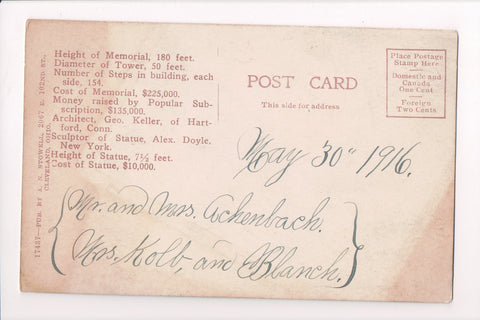 Height of Memorial, 180 feet.
Diameter of Tower, 50 feet.
Number of Steps in building, each
side, 154.
Cost of Memorial, $225,000.
Money raised by Popular Sub-
scription, $135,000.
Architect, Geo. Keller, of Hart-
ford, Conn.
Sculptor of Statue, Alex. Doyle.
New York.
Height of Statue, 7½ feet.
Cost of Statue, $10,000.
17437—PUB. BY A. N. STOWELL, 2067 E. 102ND ST.,
CLEVELAND, OHIO.
POST CARD
This side for address
Place Postage
Stamp Here
Domestic and
Canada
One Cent
Foreign
Two Cents
May 30" 1916.
Mr. and Mrs. Achenbach.
Mrs. Kolb, and Blanch.